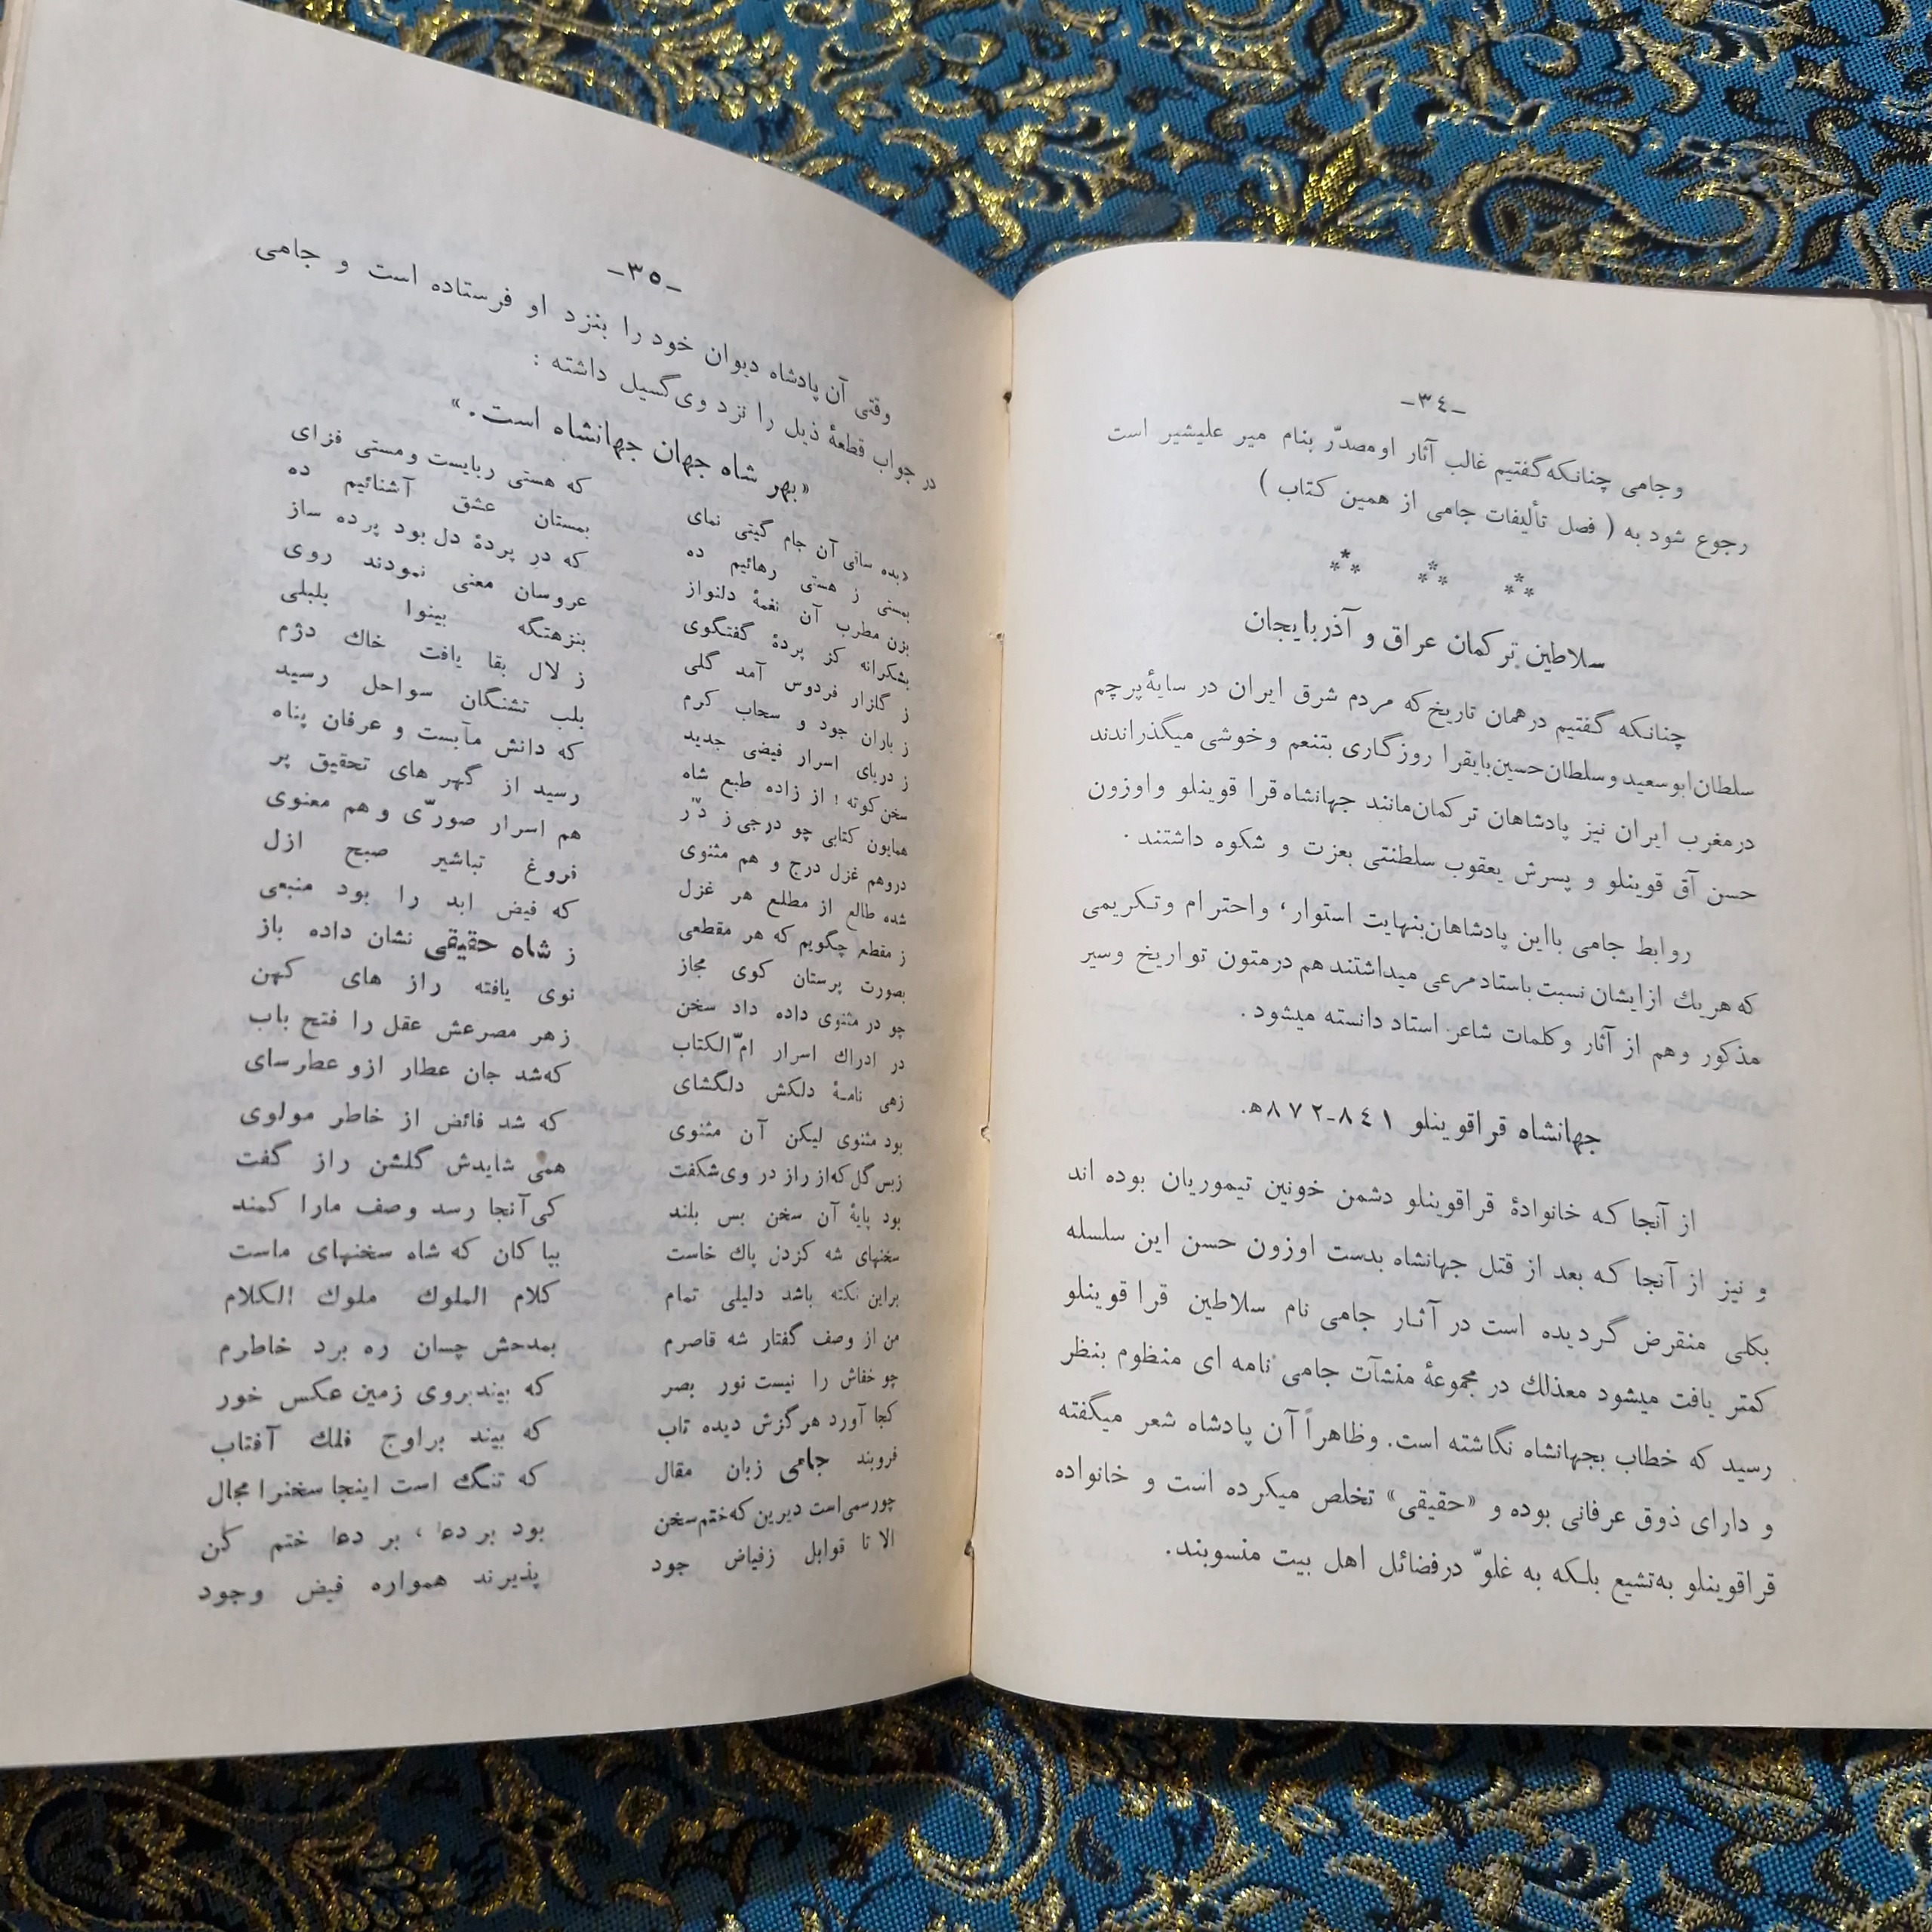 ـ٣٤ـ
وجامی چنانکه گفتیم غالب آثار او مصدّر بنام میر علیشیر است
رجوع شود به ( فصل تألیفات جامی از همین کتاب )
*** *** ***
سلاطین ترکمان عراق و آذربایجان
چنانکه گفتیم درهمان تاریخ که مردم شرق ایران در سایهٔ پرچم
سلطان ابوسعید و سلطان حسین بایقرا روزگاری بتنعم و خوشی میگذراندند
درمغرب ایران نیز پادشاهان ترکمان مانند جهانشاه قرا قوینلو و اوزون
حسن آق قوینلو و پسرش یعقوب سلطنتی بعزت و شکوه داشتند .
روابط جامی بااین پادشاهان بنهایت استوار، و احترام و تکریمی
که هریك ازایشان نسبت باستاد مرعی میداشتند هم درمتون تواریخ وسیر
مذکور وهم از آثار و کلمات شاعر استاد دانسته میشود .
جهانشاه قراقوینلو ٨٤١-٨٧٢ه.
از آنجا که خانوادهٔ قراقوینلو دشمن خونین تیموریان بوده اند
و نیز از آنجا که بعد از قتل جهانشاه بدست اوزون حسن این سلسله
بکلی منقرض گردیده است در آثار جامی نام سلاطین قرا قوینلو
کمتر یافت میشود معذلك در مجموعهٔ منشآت جامی نامه ای منظوم بنظر
رسید که خطاب بجهانشاه نگاشته است. وظاهراً آن پادشاه شعر میگفته
و دارای ذوق عرفانی بوده و «حقیقی» تخلص میکرده است و خانواده
قراقوینلو به‌تشیع بلکه به غلوّ درفضائل اهل بیت منسوبند.
ـ٣٥ـ
وقتی آن پادشاه دیوان خود را بنزد او فرستاده است و جامی
در جواب قطعهٔ ذیل را نزد وی گسیل داشته :
«بهر شاه جهان جهانشاه است.»
دبده ساقی آن جام گیتی نمای که هستی ربایست ومستی فزای
بمستی ز هستی رهائیم ده بمستان عشق آشنائیم ده
بزن مطرب آن نغمهٔ دلنواز که در پردهٔ دل بود پرده ساز
بشکرانه کز پردهٔ گفتگوی عروسان معنی نمودند روی
ز گلزار فردوس آمد گلی بنزهتگه بینوا بلبلی
ز باران جود و سحاب کرم ز لال بقا یافت خاك دژم
ز دریای اسرار فیضی جدید بلب تشنگان سواحل رسید
سخن کوته ! از زاده طبع شاه که دانش مآبست و عرفان پناه
همایون کتابی چو درجی ز دُرّ رسید از گهر های تحقیق پر
دروهم غزل درج و هم مثنوی هم اسرار صورّی و هم معنوی
شده طالع از مطلع هر غزل فروغ تباشیر صبح ازل
ز مقطع چگویم که هر مقطعی که فیض ابد را بود منبعی
بصورت پرستان کوی مجاز ز شاه حقیقی نشان داده باز
چو در مثنوی داده داد سخن نوی یافته راز های کهن
در ادراك اسرار امّ الکتاب زهر مصرعش عقل را فتح باب
زهی نامهٔ دلکش دلگشای که‌شد جان عطار ازو عطرسای
بود مثنوی لیکن آن مثنوی که شد فائض از خاطر مولوی
زبس گل که‌از راز در وی‌شکفت همی شایدش گلشن راز گفت
بود پایهٔ آن سخن بس بلند کی‌آنجا رسد وصف مارا کمند
سخنهای شه کزدل پاك خاست بیا کان که شاه سخنهای ماست
براین نکته باشد دلیلی تمام کلام الملوك ملوك الکلام
من از وصف گفتار شه قاصرم بمدحش چسان ره برد خاطرم
چو خفاش را نیست نور بصر که بیند بروی زمین عکس خور
کجا آورد هرگزش دیده تاب که بیند براوج فلك آفتاب
فروبند جامی زبان مقال که تنگ است اینجا سخنرا مجال
چورسمی‌است دیرین که‌ختم‌سخن بود بر دعا ، بر دعا ختم کن
الا تا قوابل زفیاض جود پذیرند همواره فیض وجود